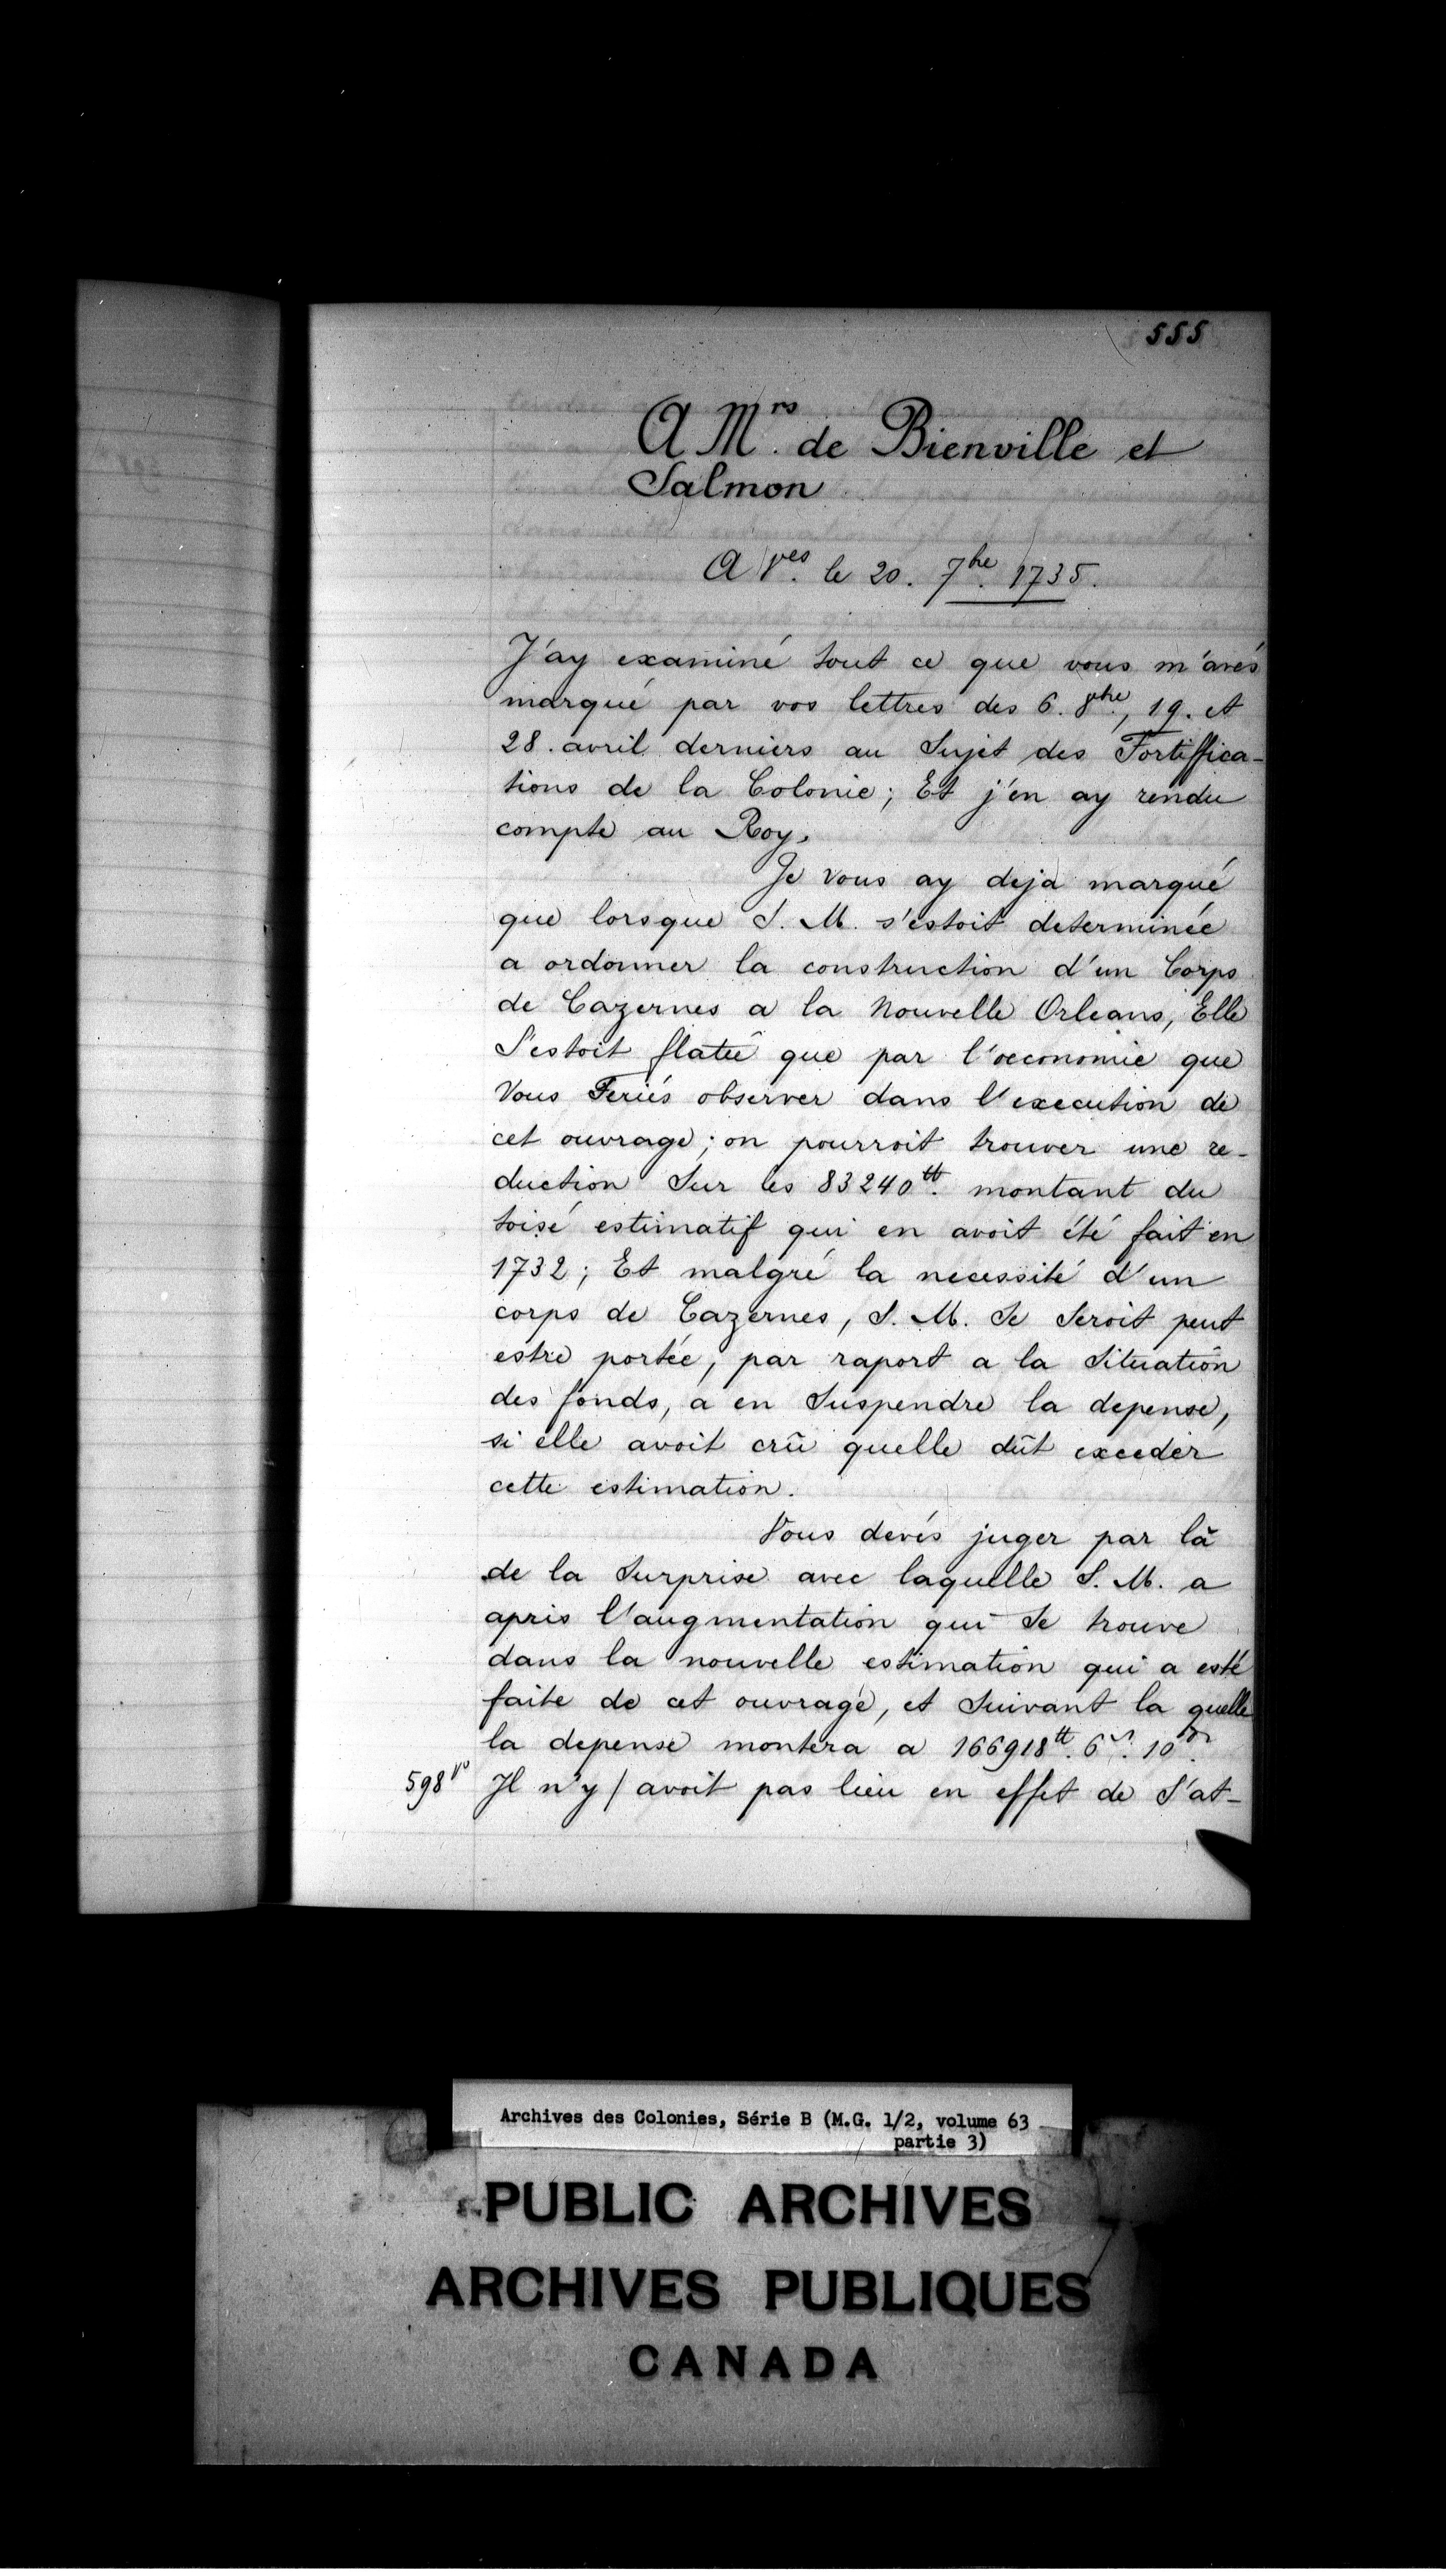 555
A Mrs. de Bienville et
Salmon
A Ves. le 20. 7bre. 1735.
J'ay examiné tout ce que vous m'avés
marqué par vos lettres des 6. 8bre., 19. et
28. avril derniers au Sujet des Fortiffica-
tions de la Colonie; Et j'en ay rendu
compte au Roy.
Je vous ay deja marqué
que lorsque S. M. s'estoit determinée
a ordonner la construction d'un Corps
de Cazernes a la Nouvelle Orleans, Elle
S'estoit flatée que par l'oeconomie que
Vous Feriés observer dans l'execution de
cet ouvrage; on pourroit trouver une re-
duction Sur les 83240tt. montant du
toisé estimatif qui en avoit été fait en
1732; Et malgré la necessité d'un
corps de Cazernes, S. M. Se Seroit peut
estre portée, par raport a la Situation
des fonds, a en Suspendre la depense,
si elle avoit crû quelle dût exceder
cette estimation.
Vous devés juger par là
de la Surprise avec laquelle S. M. a
apris l'augmentation qui Se trouve
dans la nouvelle estimation qui a esté
faite de cet ouvrage, et Suivant la quelle
la depense montera a 166918tt. 6s. 10d.
598vo Il n'y / avoit pas lieu en effet de S'at-
Archives des Colonies, Série B (M.G. 1/2, volume 63
partie 3)
PUBLIC ARCHIVES
ARCHIVES PUBLIQUES
CANADA